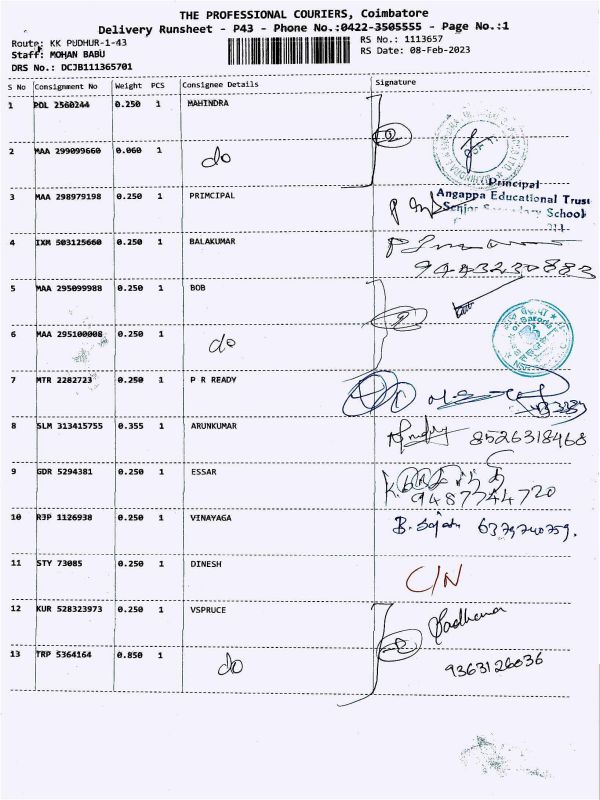 THE PROFESSIONAL COURIERS, Coimbatore
Delivery Runsheet - P43 - Phone No.:0422-3505555 - Page No.:1
Route: KK PUDHUR-1-43 RS No.: 1113657
Staff: MOHAN BABU RS Date: 08-Feb-2023
DRS No.: DCJB111365701
S No Consignment No Weight PCS Consignee Details Signature
1 POL 2560244 0.250 1 MAHINDRA
2 MAA 299099660 0.060 1 do
3 MAA 298979198 0.250 1 PRIMCIPAL
Principal
Angappa Educational Trust
Senior Secondary School
4 IXM 503125660 0.250 1 BALAKUMAR
9443230883
5 MAA 295099988 0.250 1 BOB
6 MAA 295100008 0.250 1 do
7 MTR 2282723 0.250 1 P R READY
8 SLM 313415755 0.355 1 ARUNKUMAR 8526318468
9 GDR 5294381 0.250 1 ESSAR
9487744720
10 RJP 1126938 0.250 1 VINAYAGA 6379740759.
11 STY 73085 0.250 1 DINESH C/N
12 KUR 528323973 0.250 1 VSPRUCE
13 TRP 5364164 0.850 1 do 9363126036